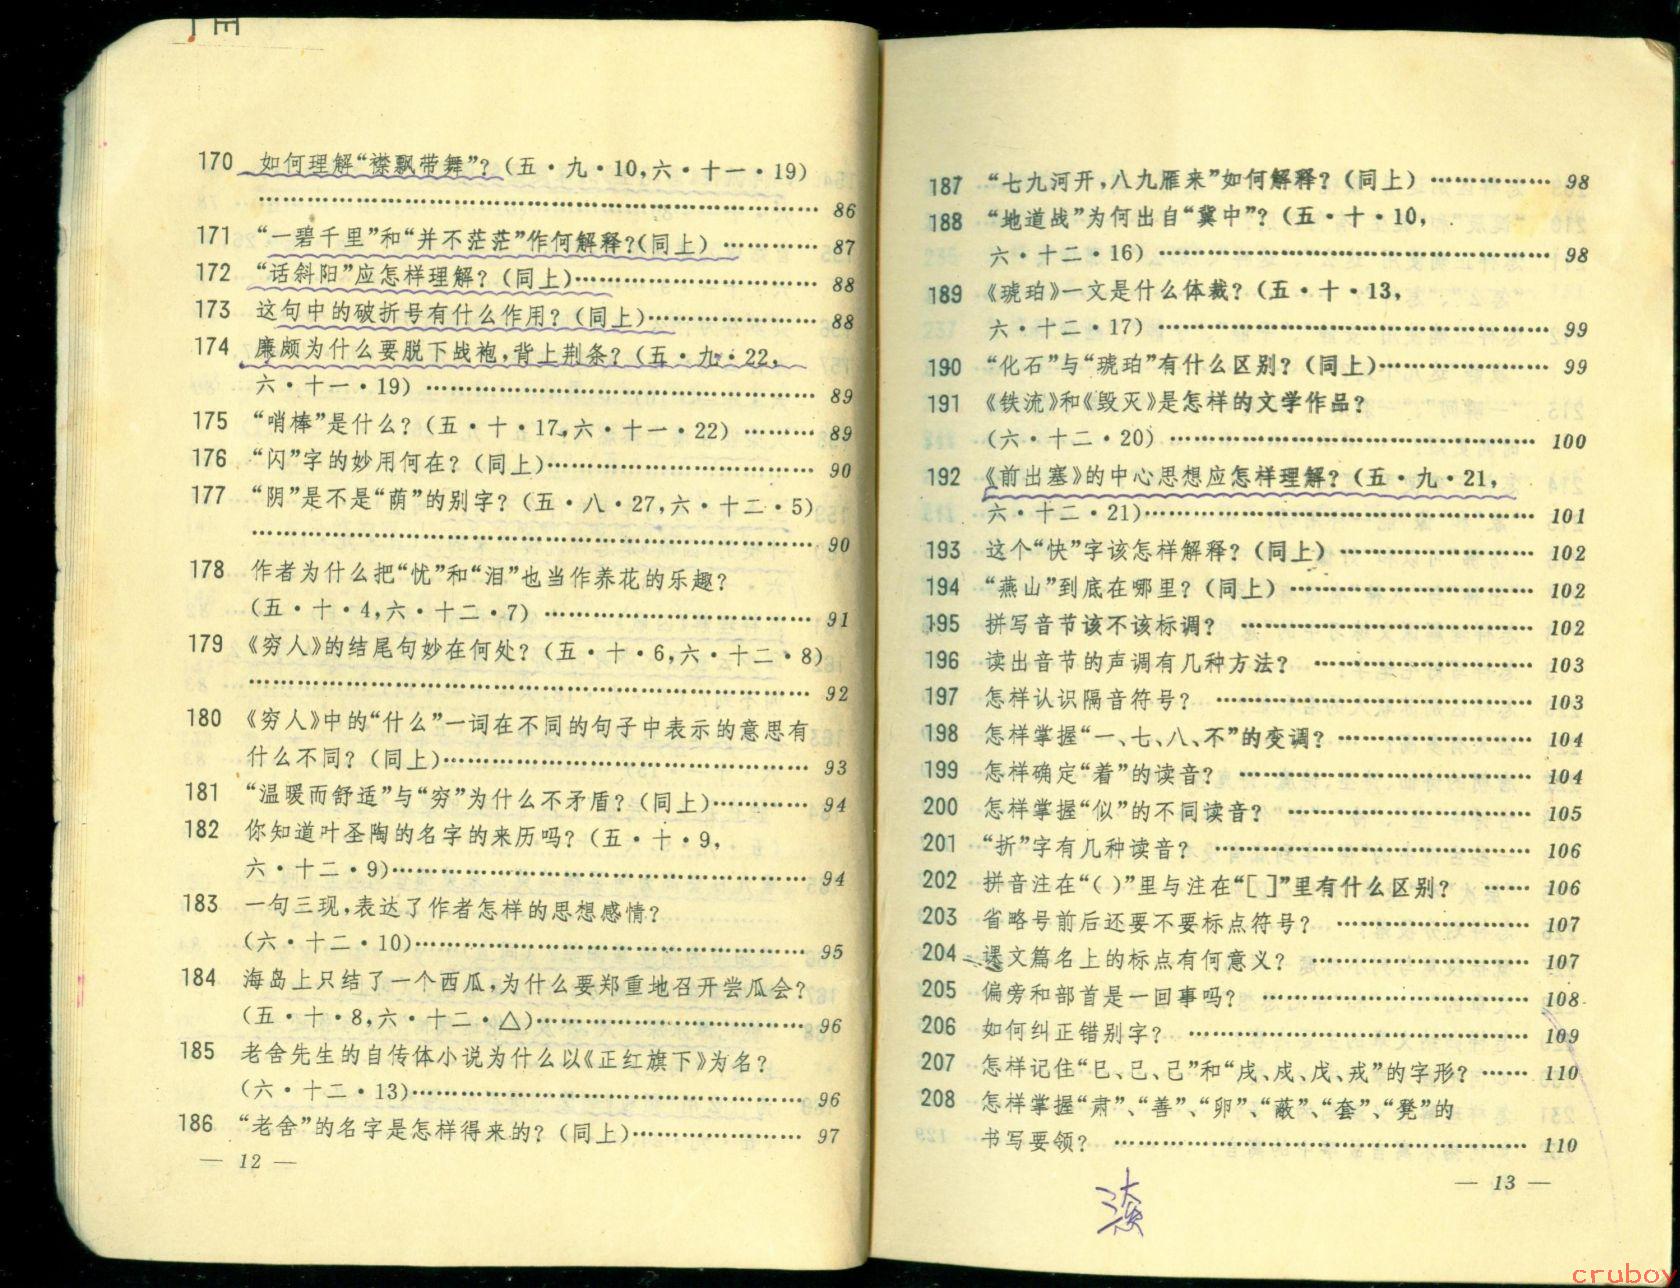 170 如何理解“襟飘带舞”？(五·九·10,六·十一·19)
………………………………………………… 86
171 “一碧千里”和“并不茫茫”作何解释?(同上) ………… 87
172 “话斜阳”应怎样理解？(同上)…………………… 88
173 这句中的破折号有什么作用？(同上)……………… 88
174 廉颇为什么要脱下战袍,背上荆条？(五·九·22,
六·十一·19) ………………………………… 89
175 “哨棒”是什么？(五·十·17,六·十一·22) ……… 89
176 “闪”字的妙用何在？(同上)……………………… 90
177 “阴”是不是“荫”的别字？(五·八·27,六·十二·5)
………………………………………………… 90
178 作者为什么把“忧”和“泪”也当作养花的乐趣？
(五·十·4,六·十二·7) ……………………… 91
179 《穷人》的结尾句妙在何处？(五·十·6,六·十二·8)
………………………………………………… 92
180 《穷人》中的“什么”一词在不同的句子中表示的意思有
什么不同？(同上)………………………………… 93
181 “温暖而舒适”与“穷”为什么不矛盾？(同上)………… 94
182 你知道叶圣陶的名字的来历吗？(五·十·9,
六·十二·9)…………………………………… 94
183 一句三现,表达了作者怎样的思想感情？
(六·十二·10)………………………………… 95
184 海岛上只结了一个西瓜,为什么要郑重地召开尝瓜会？
(五·十·8,六·十二·△)……………………… 96
185 老舍先生的自传体小说为什么以《正红旗下》为名？
(六·十二·13)………………………………… 96
186 “老舍”的名字是怎样得来的？(同上)……………… 97
— 12 —
187 “七九河开,八九雁来”如何解释？(同上) ………… 98
188 “地道战”为何出自“冀中”？(五·十·10,
六·十二·16) ………………………………… 98
189 《琥珀》一文是什么体裁？(五·十·13,
六·十二·17) ………………………………… 99
190 “化石”与“琥珀”有什么区别？(同上)……………… 99
191 《铁流》和《毁灭》是怎样的文学作品？
(六·十二·20) ……………………………… 100
192 《前出塞》的中心思想应怎样理解？(五·九·21,
六·十二·21)………………………………… 101
193 这个“快”字该怎样解释？(同上) ………………… 102
194 “燕山”到底在哪里？(同上) ……………………… 102
195 拼写音节该不该标调？ ………………………… 102
196 读出音节的声调有几种方法？ ………………… 103
197 怎样认识隔音符号？ …………………………… 103
198 怎样掌握“一、七、八、不”的变调？ ……………… 104
199 怎样确定“着”的读音？ ………………………… 104
200 怎样掌握“似”的不同读音？ …………………… 105
201 “折”字有几种读音？ …………………………… 106
202 拼音注在“( )”里与注在“[ ]”里有什么区别？ …… 106
203 省略号前后还要不要标点符号？ ……………… 107
204 课文篇名上的标点有何意义？ ………………… 107
205 偏旁和部首是一回事吗？ ……………………… 108
206 如何纠正错别字？ ……………………………… 109
207 怎样记住“巳、已、己”和“戌、戍、戊、戎”的字形？ …… 110
208 怎样掌握“肃”、“善”、“卵”、“蔽”、“套”、“凳”的
书写要领？ …………………………………… 110
— 13 —
cruboy